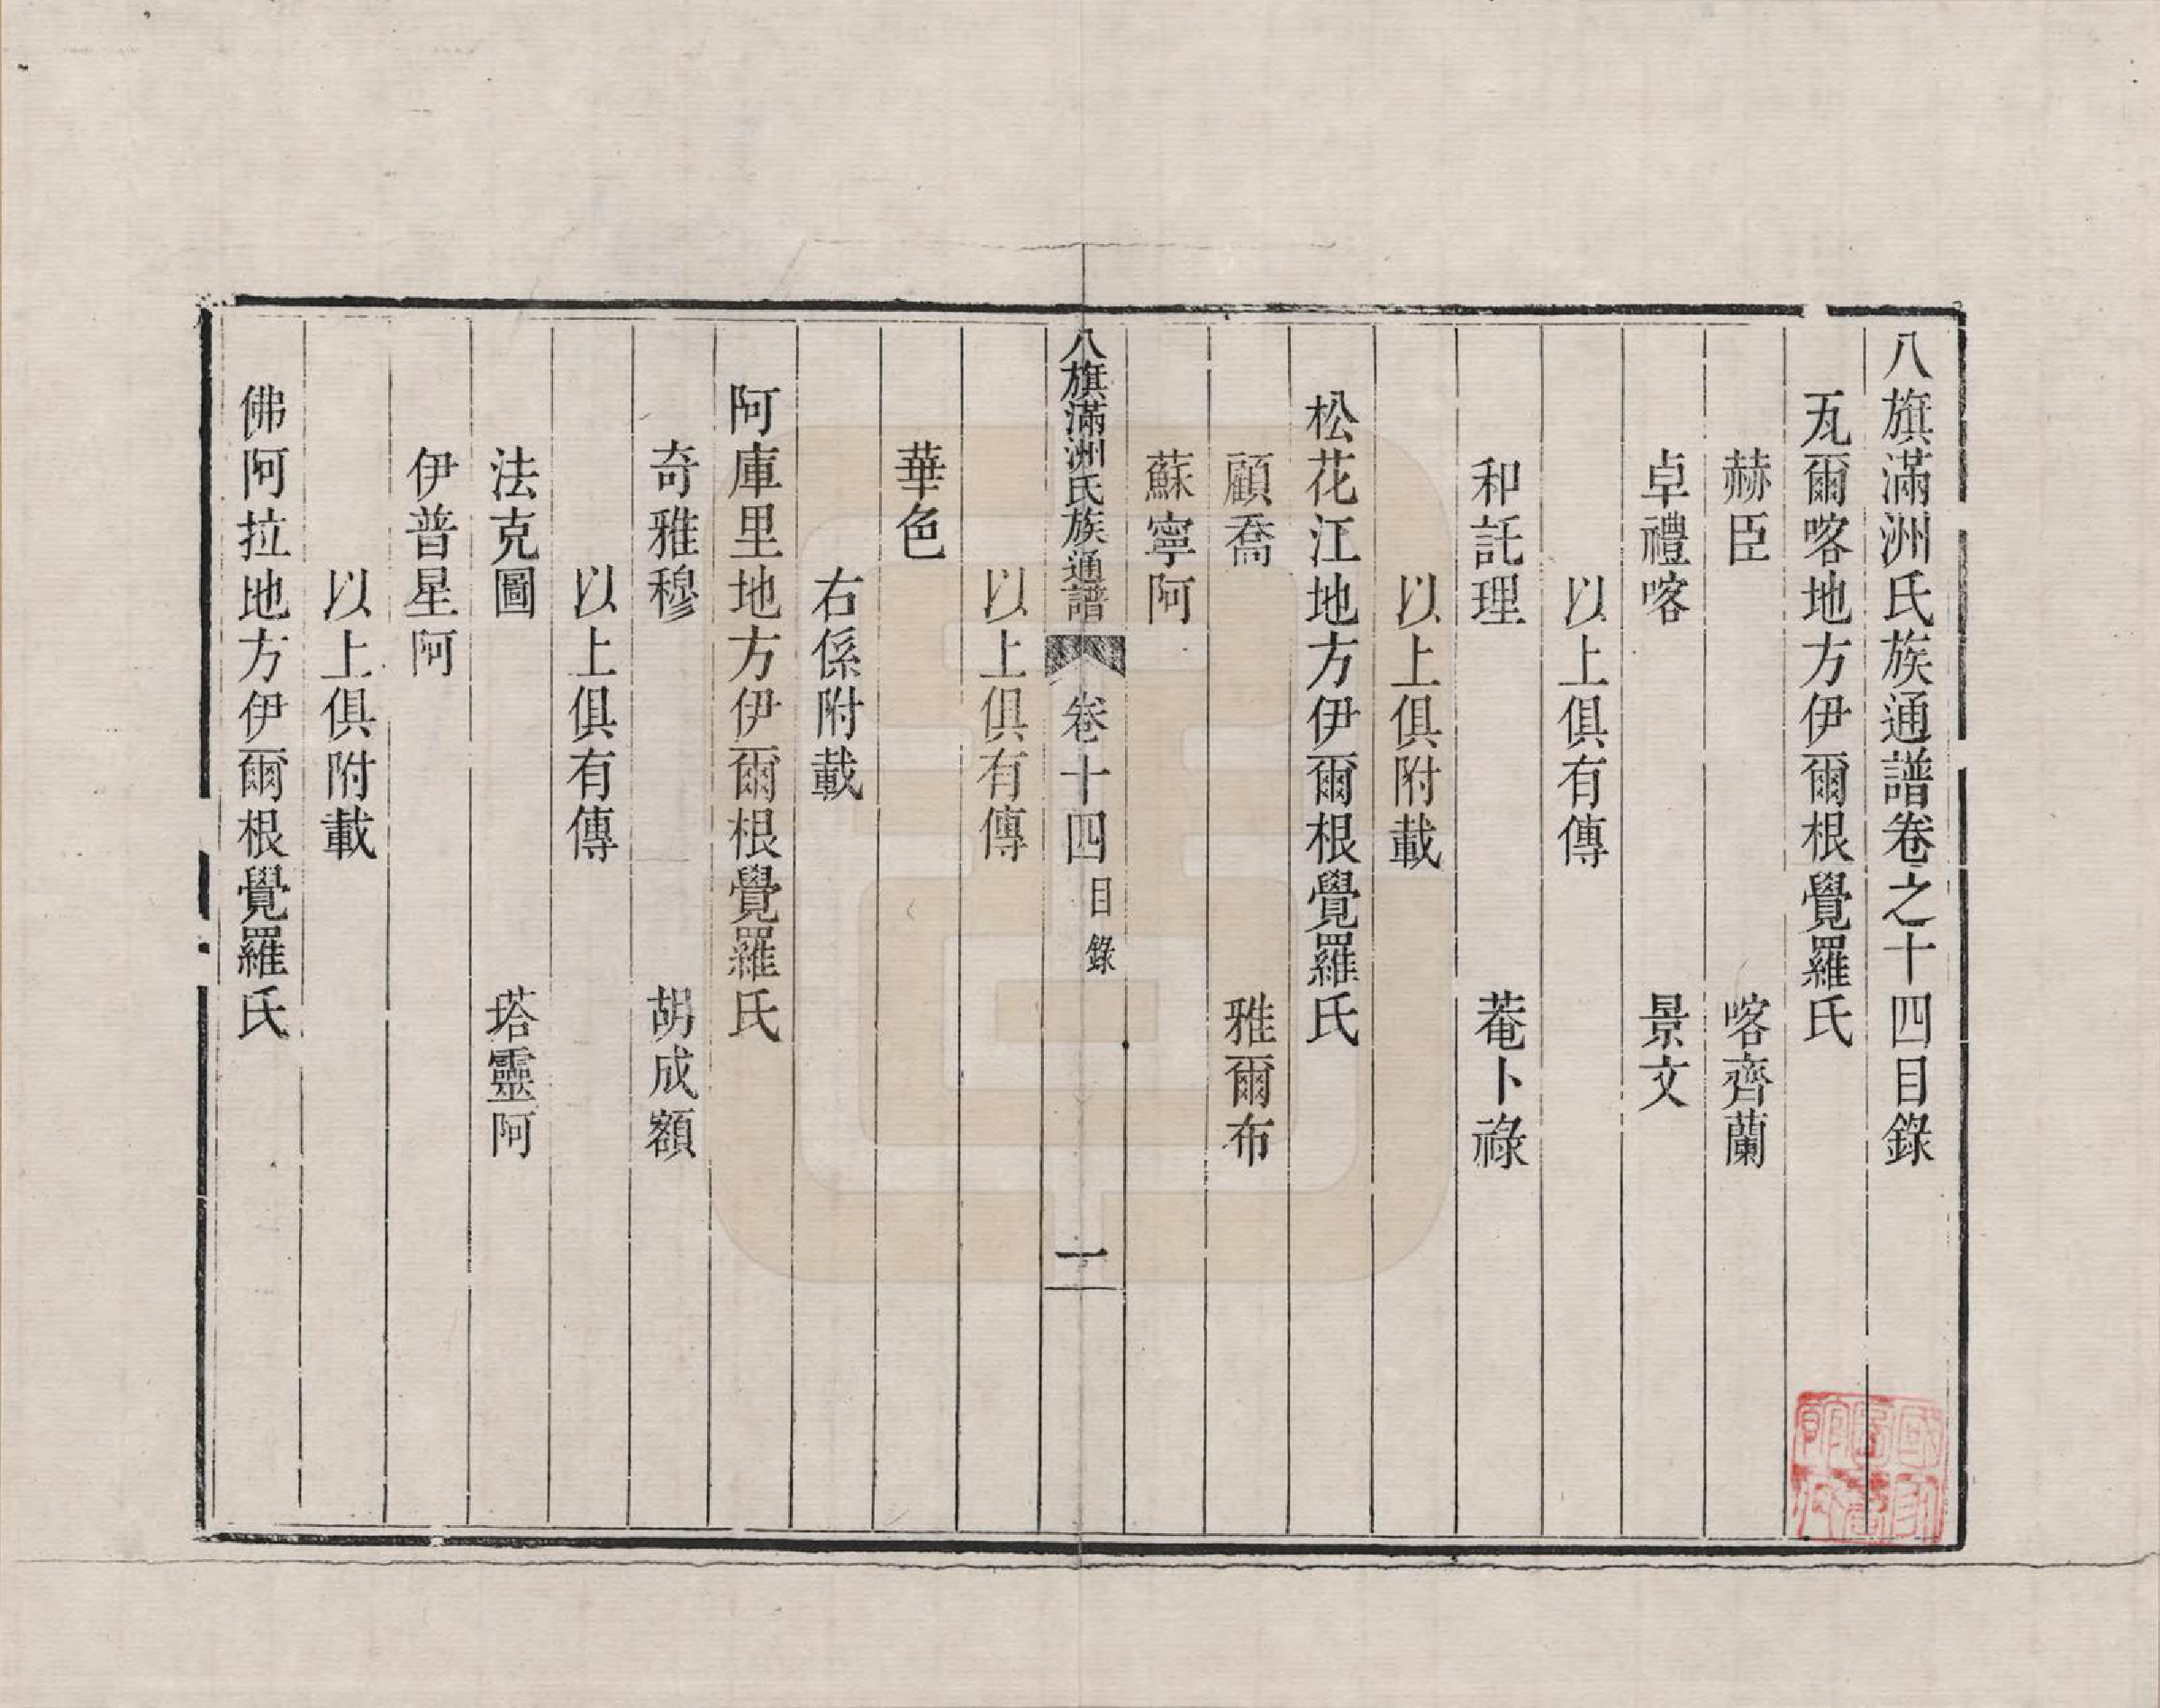 八旗滿洲氏族通譜卷之十四目錄
瓦爾喀地方伊爾根覺羅氏
赫臣　喀齊蘭
卓禮喀　景文
以上俱有傳
和託理　菴卜祿
以上俱附載
松花江地方伊爾根覺羅氏
顧喬　雅爾布
蘇寧阿
八旗滿洲氏族通譜　卷十四　目錄　一
以上俱有傳
華色
右係附載
阿庫里地方伊爾根覺羅氏
奇雅穆　胡成額
以上俱有傳
法克圖　塔靈阿
伊普星阿
以上俱附載
佛阿拉地方伊爾根覺羅氏